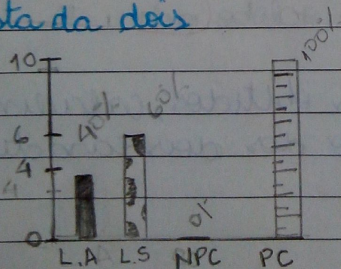 sta da dois
10
6
4
0
40%
60%
0%
100%
L.A L.S NPC PC